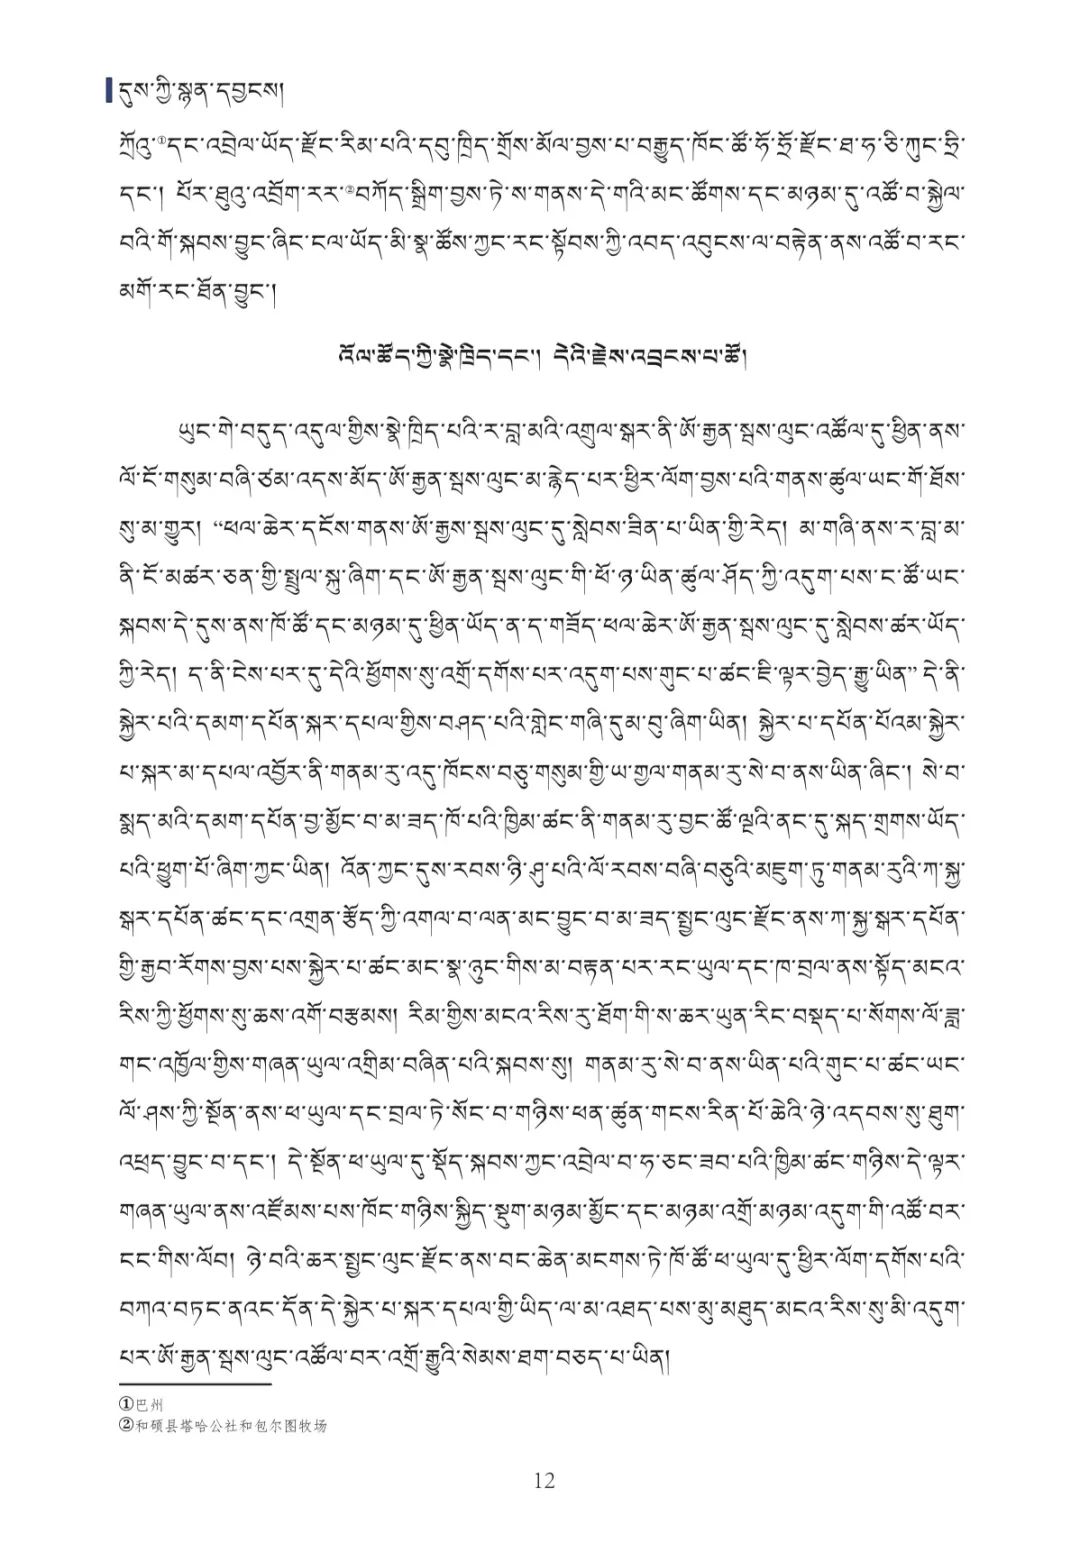 དུས་ཀྱི་སྙན་དབྱངས།
ཀྲོའུ་①དང་འབྲེལ་ཡོད་རྫོང་རིམ་པའི་དབུ་ཁྲིད་གྲོས་མོལ་བྱས་པ་བརྒྱུད་ཁོང་ཚོ་ཧོ་ཧྲོ་རྫོང་ཐ་ཧ་ཅི་ཀུང་ཧྲི་
དང་། པོར་ཐུའུ་འབྲོག་རར་②བཀོད་སྒྲིག་བྱས་ཏེ་ས་གནས་དེ་གའི་མང་ཚོགས་དང་མཉམ་དུ་འཚོ་བ་སྐྱེལ་
བའི་གོ་སྐབས་བྱུང་ཞིང་ངལ་ཡོད་མི་སྣ་ཚོས་ཀྱང་རང་སྟོབས་ཀྱི་འབད་འབུངས་ལ་བརྟེན་ནས་འཚོ་བ་རང་
མགོ་རང་ཐོན་བྱུང་།
འོལ་ཚོད་ཀྱི་སྣེ་ཁྲིད་དང་། དེའི་རྗེས་འབྲངས་པ་ཚོ།
ཡུང་གེ་བདུད་འདུལ་གྱིས་སྣེ་ཁྲིད་པའི་ར་བླ་མའི་འགྲུལ་སྒར་ནི་ཨོ་རྒྱན་སྦས་ལུང་འཚོལ་དུ་ཕྱིན་ནས་
ལོ་ངོ་གསུམ་བཞི་ཙམ་འདས་མོད་ཨོ་རྒྱན་སྦས་ལུང་མ་རྙེད་པར་ཕྱིར་ལོག་བྱས་པའི་གནས་ཚུལ་ཡང་གོ་ཐོས་
སུ་མ་གྱུར། “ཕལ་ཆེར་དངོས་གནས་ཨོ་རྒྱས་སྦས་ལུང་དུ་སླེབས་ཟིན་པ་ཡིན་གྱི་རེད། མ་གཞི་ནས་ར་བླ་མ་
ནི་ངོ་མཚར་ཅན་གྱི་སྤྲུལ་སྐུ་ཞིག་དང་ཨོ་རྒྱན་སྦས་ལུང་གི་ཕོ་ཉ་ཡིན་ཚུལ་ཤོད་ཀྱི་འདུག་པས་ང་ཚོ་ཡང་
སྐབས་དེ་དུས་ནས་ཁོ་ཚོ་དང་མཉམ་དུ་ཕྱིན་ཡོད་ན་ད་གཟོད་ཕལ་ཆེར་ཨོ་རྒྱན་སྦས་ལུང་དུ་སླེབས་ཚར་ཡོད་
ཀྱི་རེད། ད་ནི་ངེས་པར་དུ་དེའི་ཕྱོགས་སུ་འགྲོ་དགོས་པར་འདུག་པས་གུང་པ་ཚང་ཇི་ལྟར་བྱེད་རྒྱུ་ཡིན” དེ་ནི་
སྐྱེར་པའི་དམག་དཔོན་སྐར་དཔལ་གྱིས་བཤད་པའི་གླེང་གཞི་དུམ་བུ་ཞིག་ཡིན། སྐྱེར་པ་དཔོན་པོའམ་སྐྱེར་
པ་སྐར་མ་དཔལ་འབྱོར་ནི་གནམ་རུ་འདུ་ཁོངས་བཅུ་གསུམ་གྱི་ཡ་གྱལ་གནམ་རུ་སེ་བ་ནས་ཡིན་ཞིང་། སེ་བ་
སྨད་མའི་དམག་དཔོན་བྱ་མྱོང་བ་མ་ཟད་ཁོ་པའི་ཁྱིམ་ཚང་ནི་གནམ་རུ་བྱང་ཚོ་ལྔའི་ནང་དུ་སྐད་གྲགས་ཡོད་
པའི་ཕྱུག་པོ་ཞིག་ཀྱང་ཡིན། འོན་ཀྱང་དུས་རབས་ཉི་ཤུ་པའི་ལོ་རབས་བཞི་བཅུའི་མཇུག་ཏུ་གནམ་རུའི་ཀ་སྐྱ་
སྒར་དཔོན་ཚང་དང་འགྲན་རྩོད་ཀྱི་འགལ་བ་ལན་མང་བྱུང་བ་མ་ཟད་སྤྱང་ལུང་རྫོང་ནས་ཀ་སྐྱ་སྒར་དཔོན་
གྱི་རྒྱབ་རོགས་བྱས་པས་སྐྱེར་པ་ཚང་མང་སྣ་ཉུང་གིས་མ་བརྟན་པར་རང་ཡུལ་དང་ཁ་བྲལ་ནས་སྟོད་མངའ་
རིས་ཀྱི་ཕྱོགས་སུ་ཆས་འགོ་བརྩམས། རིམ་གྱིས་མངའ་རིས་རུ་ཐོག་གི་ས་ཆར་ཡུན་རིང་བསྡད་པ་སོགས་ལོ་ཟླ་
གང་འཁྱོལ་གྱིས་གཞན་ཡུལ་འགྲིམ་བཞིན་པའི་སྐབས་སུ། གནམ་རུ་སེ་བ་ནས་ཡིན་པའི་གུང་པ་ཚང་ཡང་
ལོ་ཤས་ཀྱི་སྔོན་ནས་ཕ་ཡུལ་དང་བྲལ་ཏེ་སོང་བ་གཉིས་ཕན་ཚུན་གངས་རིན་པོ་ཆེའི་ཉེ་འདབས་སུ་ཐུག་
འཕྲད་བྱུང་བ་དང་། དེ་སྔོན་ཕ་ཡུལ་དུ་སྡོད་སྐབས་ཀྱང་འབྲེལ་བ་ཧ་ཅང་ཟབ་པའི་ཁྱིམ་ཚང་གཉིས་དེ་ལྟར་
གཞན་ཡུལ་ནས་འཛོམས་པས་ཁོང་གཉིས་སྐྱིད་སྡུག་མཉམ་མྱོང་དང་མཉམ་འགྲོ་མཉམ་འདུག་གི་འཚོ་བར་
ངང་གིས་ལོབ། ཉེ་བའི་ཆར་སྤྱང་ལུང་རྫོང་ནས་བང་ཆེན་མངགས་ཏེ་ཁོ་ཚོ་ཕ་ཡུལ་དུ་ཕྱིར་ལོག་དགོས་པའི་
བཀའ་བཏང་ནའང་དོན་དེ་སྐྱེར་པ་སྐར་དཔལ་གྱི་ཡིད་ལ་མ་འཐད་པས་མུ་མཐུད་མངའ་རིས་སུ་མི་འདུག་
པར་ཨོ་རྒྱན་སྦས་ལུང་འཚོལ་བར་འགྲོ་རྒྱུའི་སེམས་ཐག་བཅད་པ་ཡིན།
①巴州
②和硕县塔哈公社和包尔图牧场
12